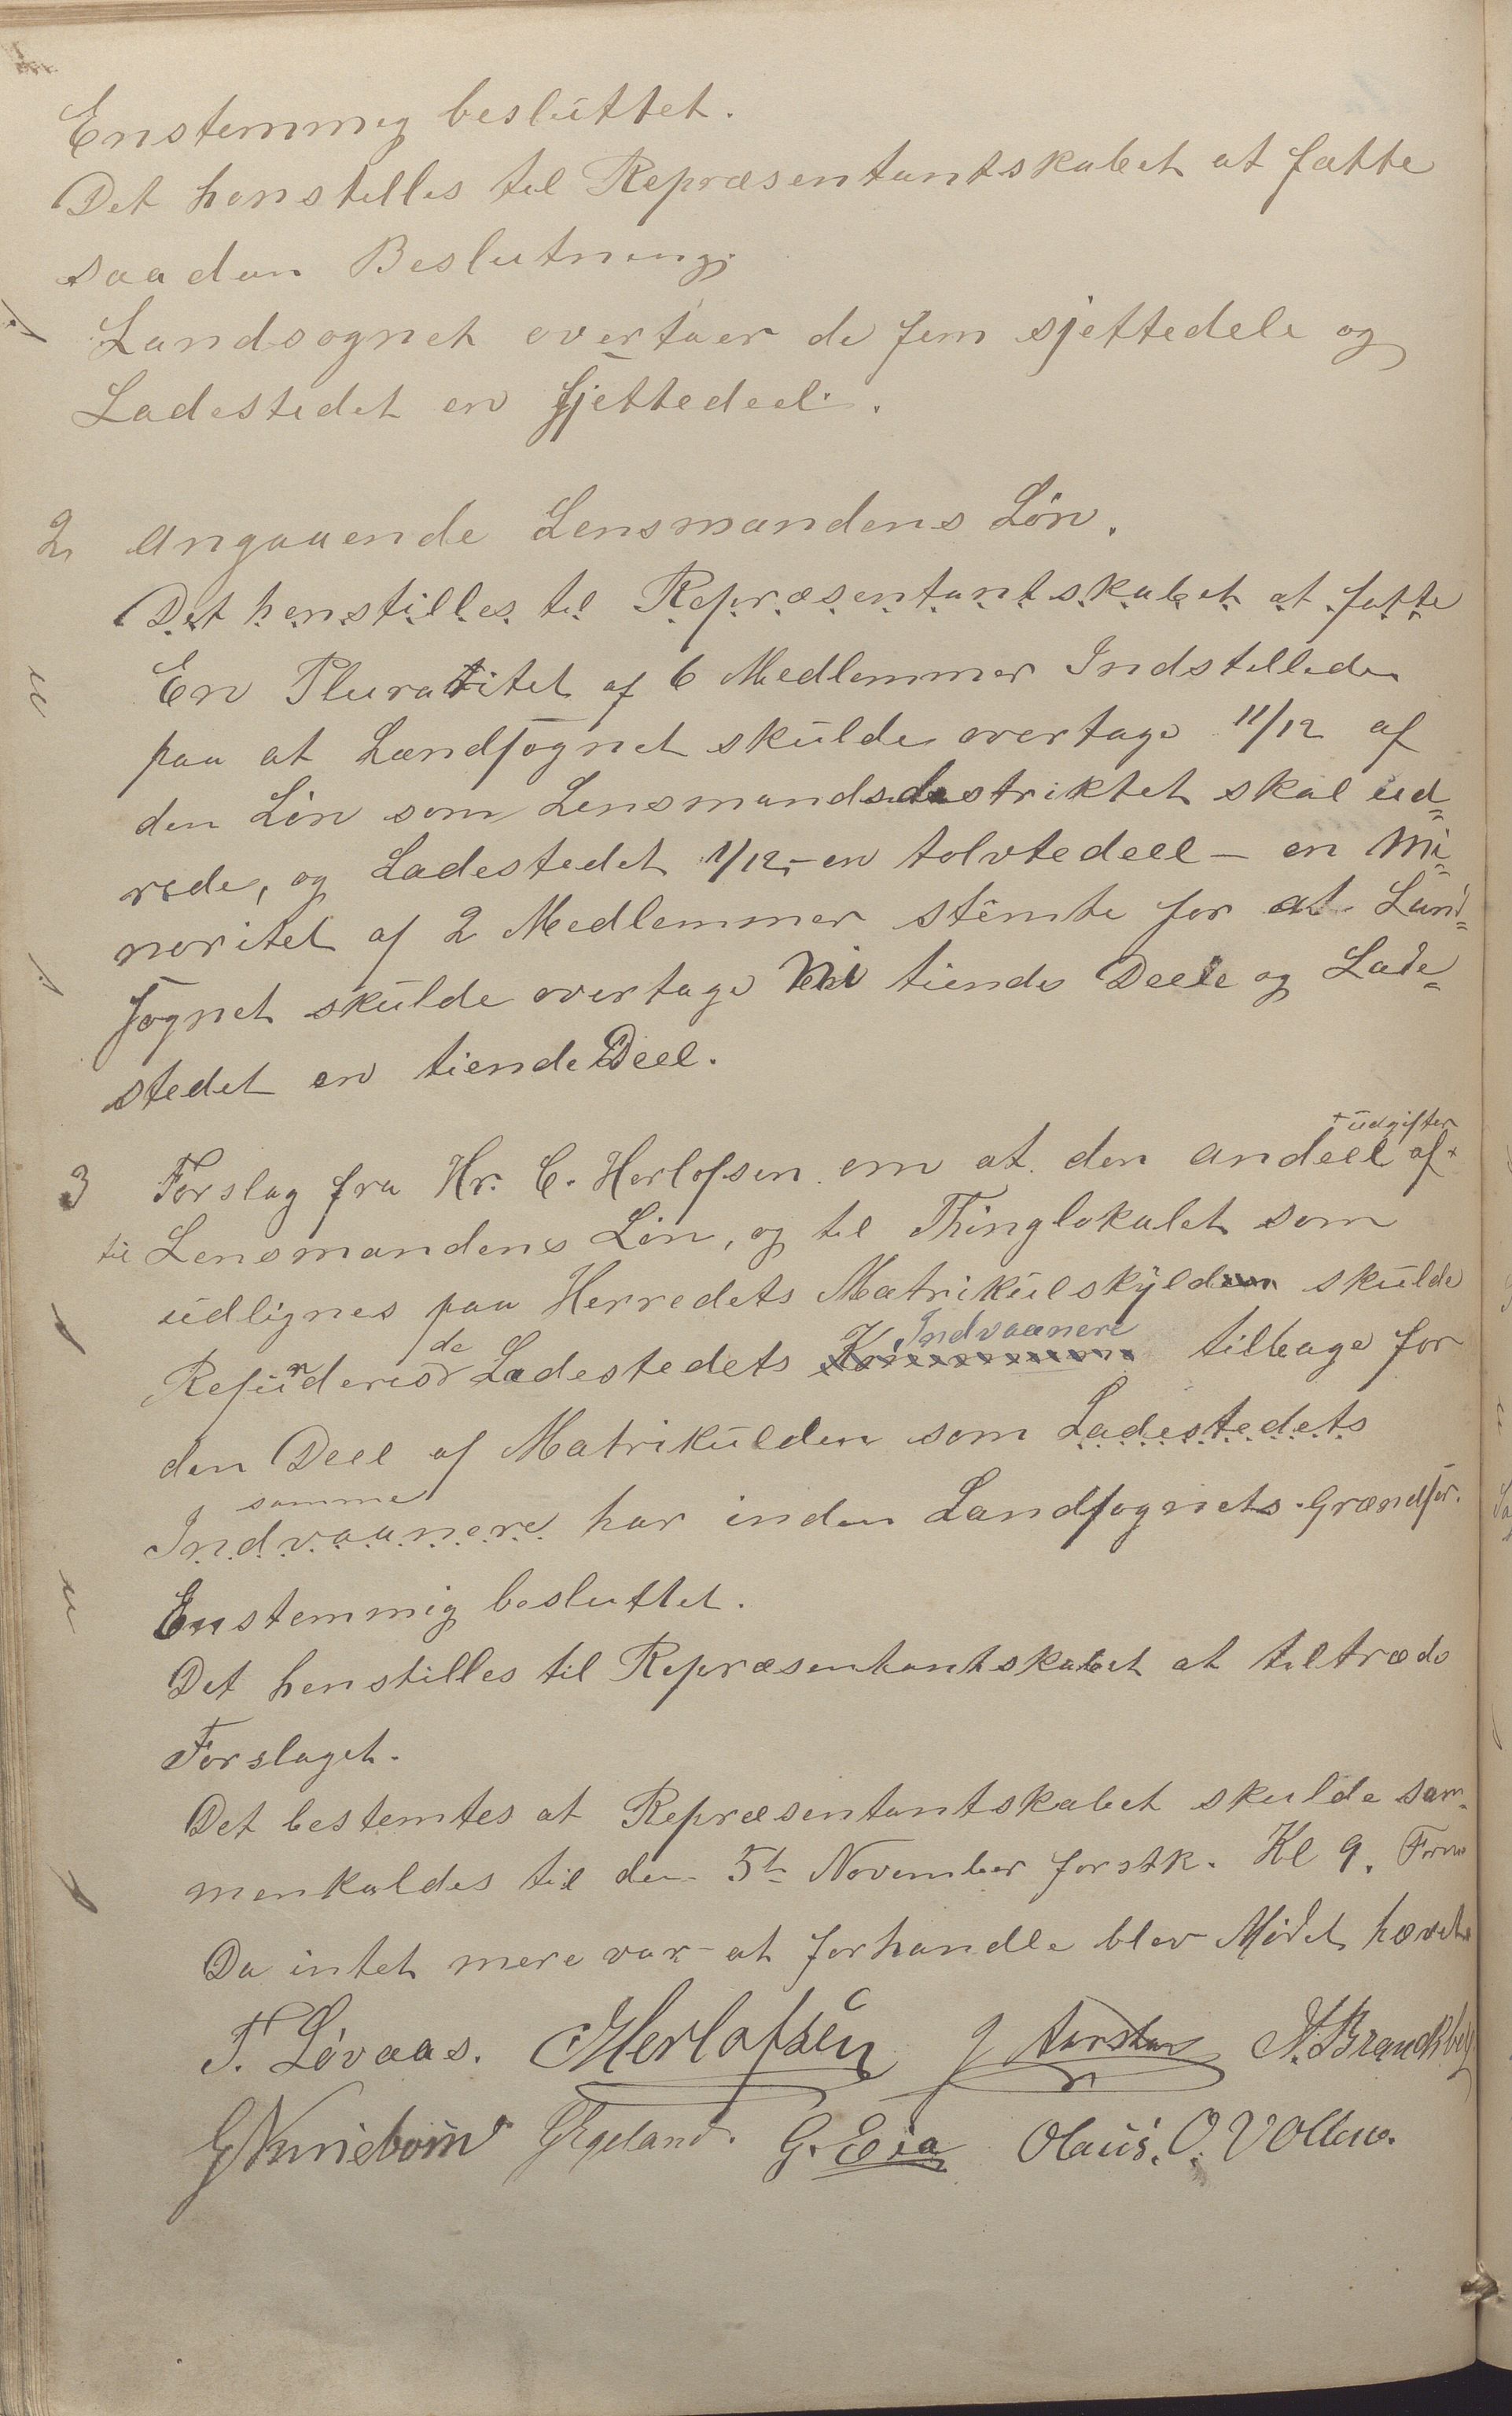 Enstemmig besluttet.
Det henstilles til Repræsentantskabet at fatte
saadan Beslutning;
Landsognet overtaer de fem sjettedele og
Ladestedet en Sjettedeel.
2 Angaaende Lensmandens Løn.
Det henstilles til Repræsentantskabet at fatte
En Pluralitet af 6 Medlemmer Indstillede
paa at Landsognet skulde overtage 11/12 af
den Løn som Lensmandsdistriktet skal ud-
rede, og Ladestedet 1/12, en tolvtedeel – en Mi-
noritet af 2 Medlemmer stemte for at Land-
sognet skulde overtage Ni tiende Deele og Lade-
stedet en tiende Deel.
+ udgifter
3 Forslag fra Hr. C. Herlofsen om at den Andeel af +
til Lensmandens Løn, og til Thinglokalet som
udlignes paa Herredets Matrikulskyld skulde
de Indvaanere
Refunderes Ladestedets tilbage for
den Deel af Matrikulden som Ladestedets
samme
Indvaanere har inden Landsognets Grændser.
Enstemmig besluttet.
Det henstilles til Repræsentantskabet at tiltræde
Forslaget.
Det bestemtes at Repræsentantskabet skulde sam-
menkaldes til den 5te November førstk. Kl 9. Form
Da intet mere var at forhandle blev Mødet hævet
T. Løvaas. CHerlofsen J Aarstar
GEgeland. G. Eia Olaus. O. Vollen.